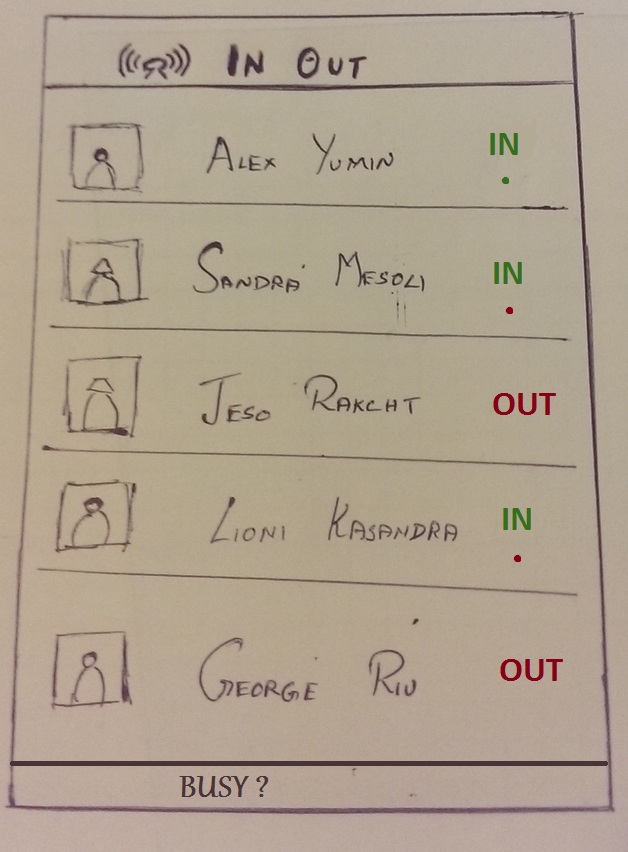 IN OUT
ALEX YUMIN IN
SANDRA MESOLI IN
JESO RAKCHT OUT
LIONI KASANDRA IN
GEORGE RIU OUT
BUSY ?